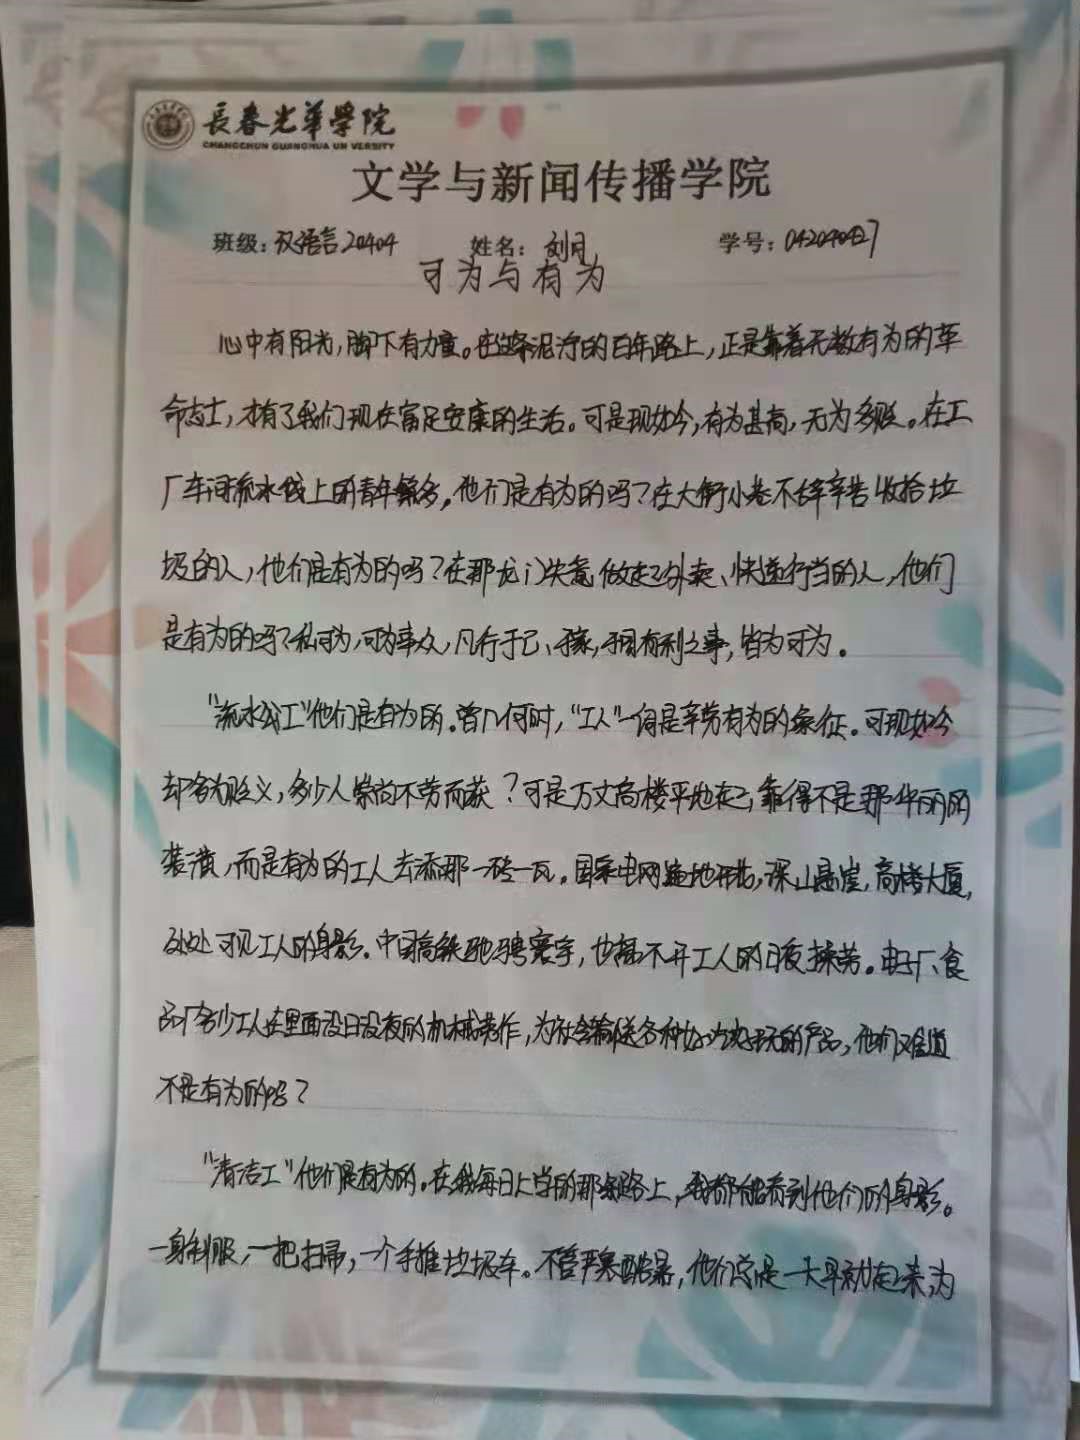 長春光華學院
CHANGCHUN GUANGHUA UN VERSITY
文学与新闻传播学院
班级：汉语言20404 姓名：刘月 学号：042040427
可为与有为
心中有阳光，脚下有力量。在这条泥泞的百年路上，正是靠着无数有为的革
命志士，才有了我们现在富足安康的生活。可是现如今，有为甚高，无为多贬。在工
厂车间流水线上的青年繁多，他们是有为的吗？在大街小巷不辞辛苦收拾垃
圾的人，他们是有为的吗？在那龙门失意做起了外卖、快递行当的人，他们
是有为的吗？私可为，可为事众，凡行于己、于家，于国有利之事，皆为可为。
“流水线工”他们是有为的。曾几何时，“工人”一词是辛劳有为的象征。可现如今
却名为贬义，多少人崇尚不劳而获？可是万丈高楼平地起，靠得不是那华丽的
装潢，而是有为的工人去添那一砖一瓦。国家电网遍地开花，深山悬崖，高楼大厦，
处处可见工人的身影。中国高铁驰骋寰宇，也离不开工人的日夜操劳。电子厂、食
品厂多少工人在里面没日没夜的机械劳作，为社会输送各种好吃好玩的产品，他们难道
不是有为的吗？
“清洁工”他们是有为的。在我每日上学的那条路上，我都能看到他们的身影。
一身制服，一把扫帚，一个手推垃圾车。不管严寒酷暑，他们总是一大早就起来，为